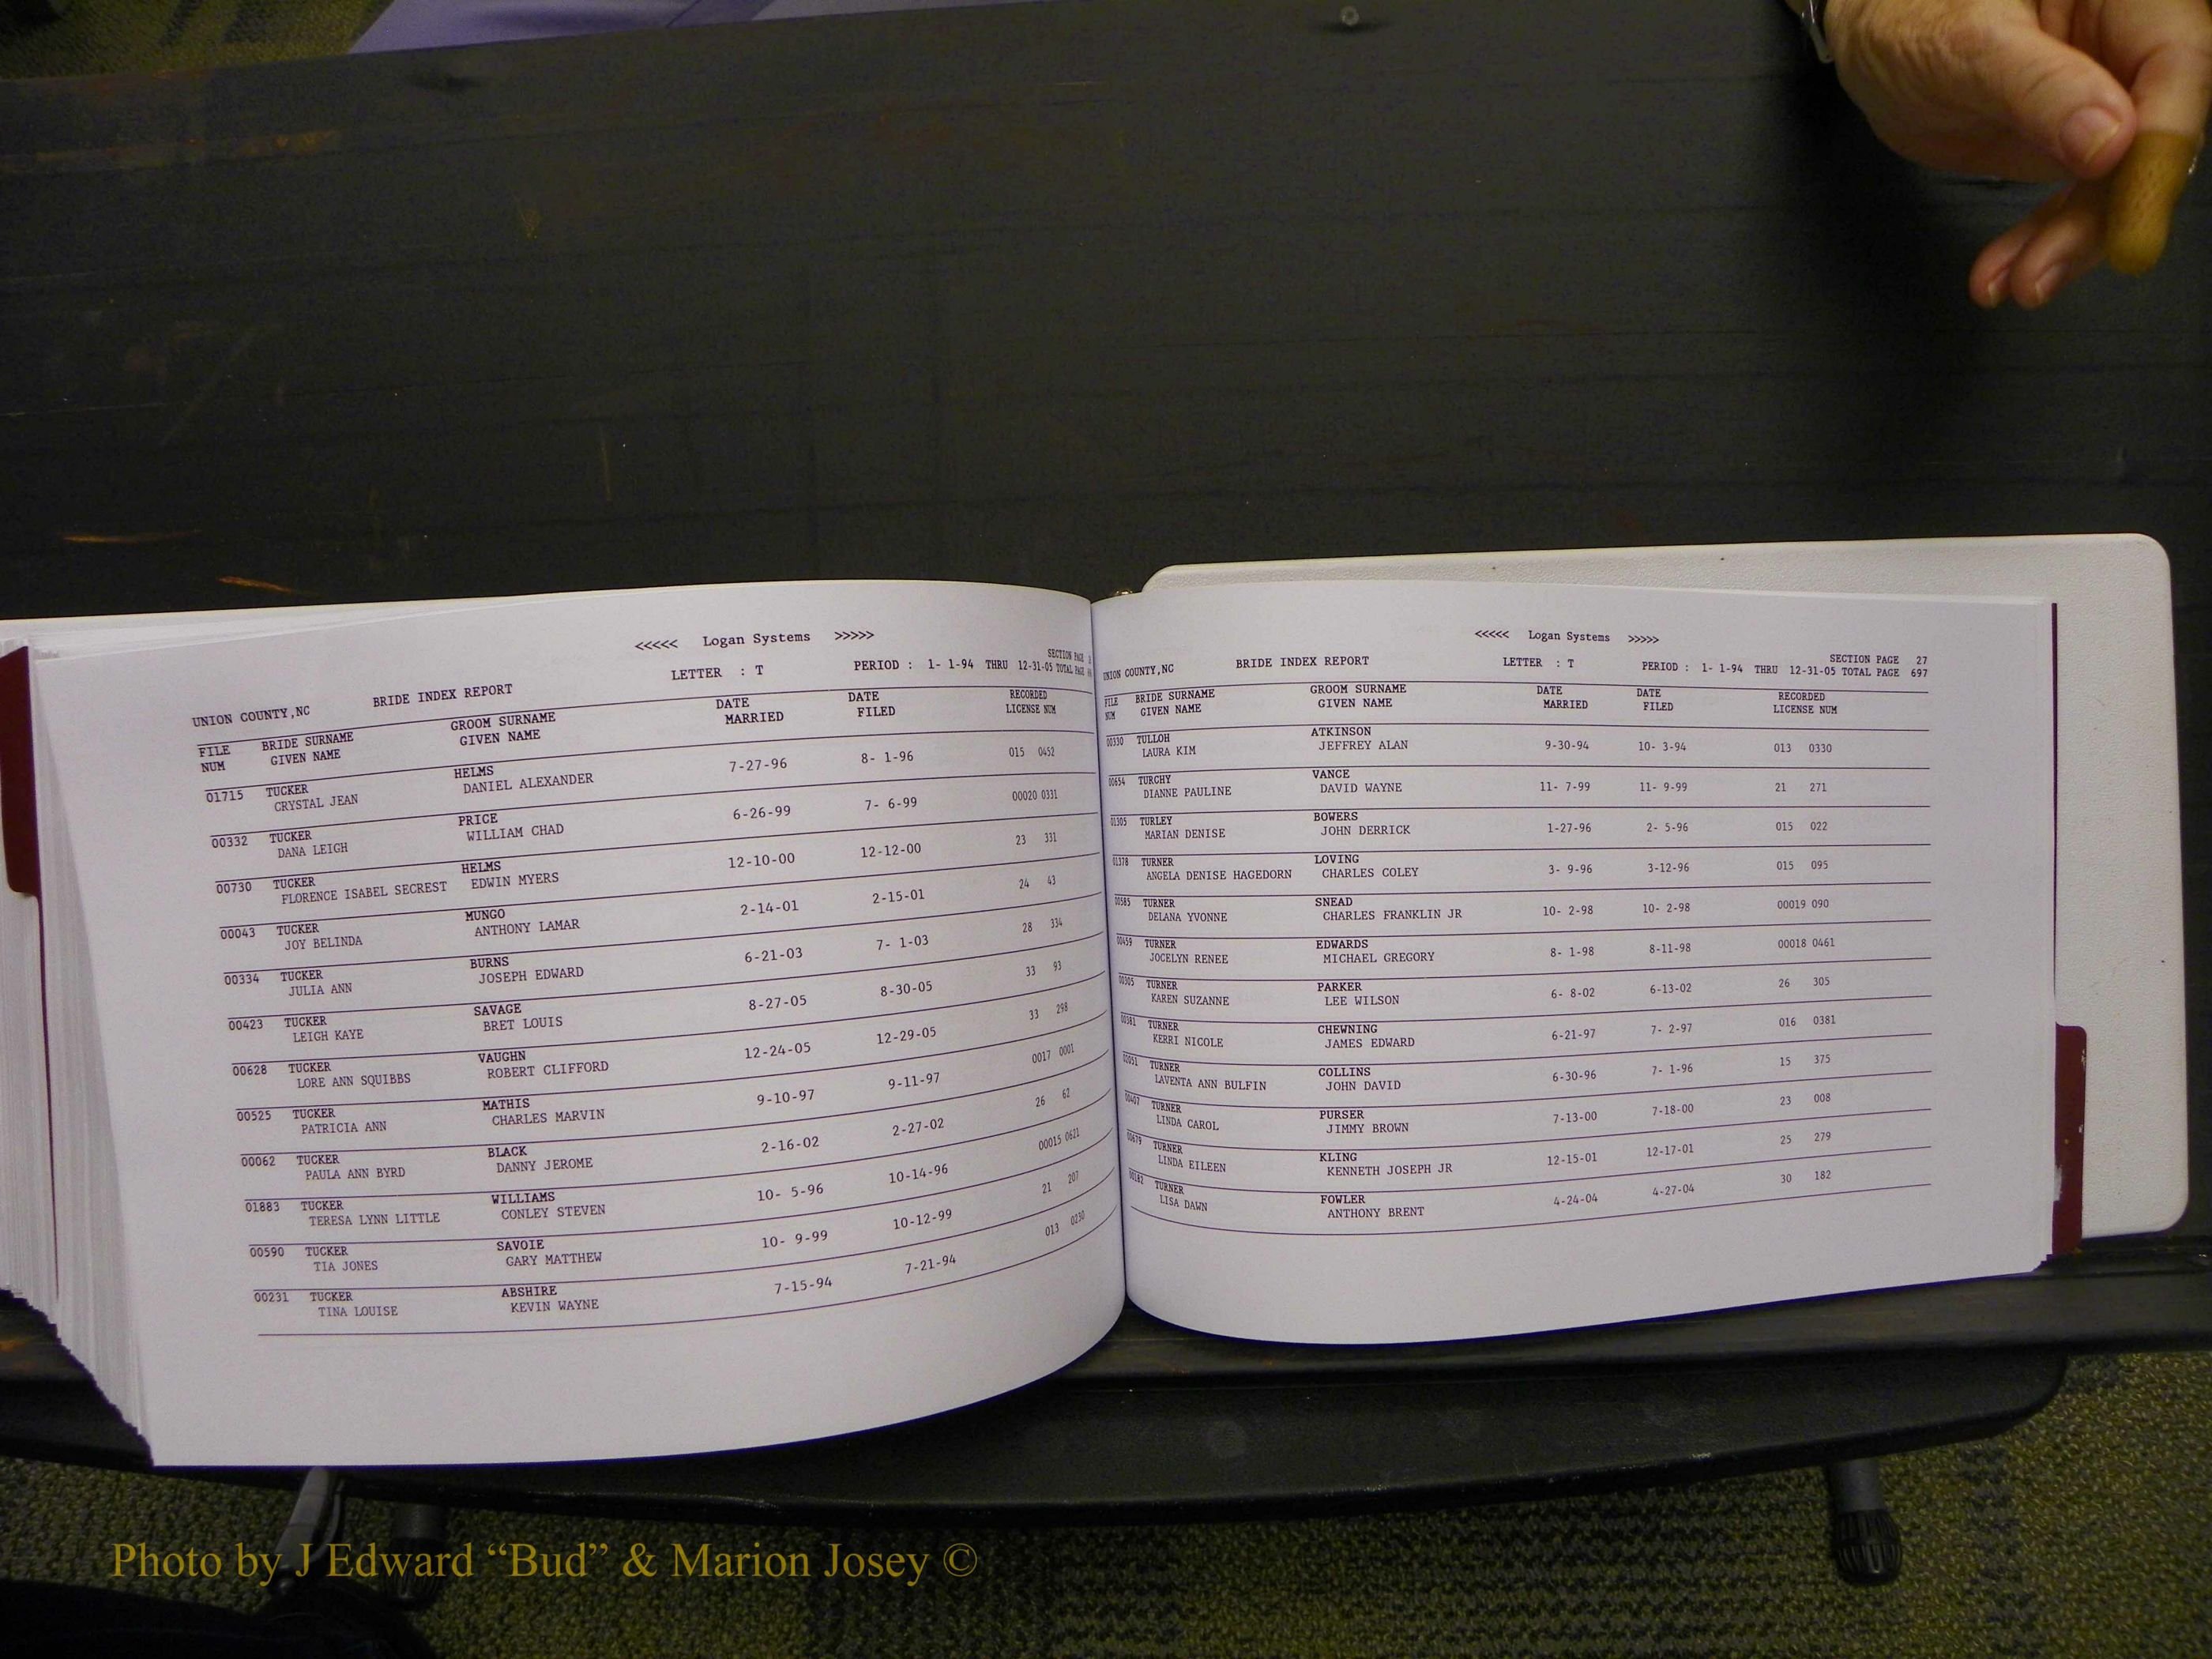 <<<<< Logan Systems >>>>>
UNION COUNTY,NC BRIDE INDEX REPORT LETTER : T PERIOD : 1- 1-94 THRU 12-31-05 SECTION PAGE
TOTAL PAGE
FILE BRIDE SURNAME GROOM SURNAME DATE DATE RECORDED
NUM GIVEN NAME GIVEN NAME MARRIED FILED LICENSE NUM
01715 TUCKER HELMS 7-27-96 8- 1-96 015 0452
CRYSTAL JEAN DANIEL ALEXANDER
00332 TUCKER PRICE 6-26-99 7- 6-99 00020 0331
DANA LEIGH WILLIAM CHAD
00730 TUCKER HELMS 12-10-00 12-12-00 23 331
FLORENCE ISABEL SECREST EDWIN MYERS
00043 TUCKER MUNGO 2-14-01 2-15-01 24 43
JOY BELINDA ANTHONY LAMAR
00334 TUCKER BURNS 6-21-03 7- 1-03 28 334
JULIA ANN JOSEPH EDWARD
00423 TUCKER SAVAGE 8-27-05 8-30-05 33 93
LEIGH KAYE BRET LOUIS
00628 TUCKER VAUGHN 12-24-05 12-29-05 33 298
LORE ANN SQUIBBS ROBERT CLIFFORD
00525 TUCKER MATHIS 9-10-97 9-11-97 0017 0001
PATRICIA ANN CHARLES MARVIN
00062 TUCKER BLACK 2-16-02 2-27-02 26 62
PAULA ANN BYRD DANNY JEROME
01883 TUCKER WILLIAMS 10- 5-96 10-14-96 00015 0621
TERESA LYNN LITTLE CONLEY STEVEN
00590 TUCKER SAVOIE 10- 9-99 10-12-99 21 207
TIA JONES GARY MATTHEW
00231 TUCKER ABSHIRE 7-15-94 7-21-94 013 0230
TINA LOUISE KEVIN WAYNE
<<<<< Logan Systems >>>>>
UNION COUNTY,NC BRIDE INDEX REPORT LETTER : T PERIOD : 1- 1-94 THRU 12-31-05 SECTION PAGE 27
TOTAL PAGE 697
FILE BRIDE SURNAME GROOM SURNAME DATE DATE RECORDED
NUM GIVEN NAME GIVEN NAME MARRIED FILED LICENSE NUM
00330 TULLOH ATKINSON 9-30-94 10- 3-94 013 0330
LAURA KIM JEFFREY ALAN
00654 TURCHY VANCE 11- 7-99 11- 9-99 21 271
DIANNE PAULINE DAVID WAYNE
01305 TURLEY BOWERS 1-27-96 2- 5-96 015 022
MARIAN DENISE JOHN DERRICK
01378 TURNER LOVING 3- 9-96 3-12-96 015 095
ANGELA DENISE HAGEDORN CHARLES COLEY
00585 TURNER SNEAD 10- 2-98 10- 2-98 00019 090
DELANA YVONNE CHARLES FRANKLIN JR
00459 TURNER EDWARDS 8- 1-98 8-11-98 00018 0461
JOCELYN RENEE MICHAEL GREGORY
00305 TURNER PARKER 6- 8-02 6-13-02 26 305
KAREN SUZANNE LEE WILSON
00381 TURNER CHEWNING 6-21-97 7- 2-97 016 0381
KERRI NICOLE JAMES EDWARD
TURNER COLLINS 6-30-96 7- 1-96 15 375
LAVENTA ANN BULFIN JOHN DAVID
00407 TURNER PURSER 7-13-00 7-18-00 23 008
LINDA CAROL JIMMY BROWN
00679 TURNER KLING 12-15-01 12-17-01 25 279
LINDA EILEEN KENNETH JOSEPH JR
00182 TURNER FOWLER 4-24-04 4-27-04 30 182
LISA DAWN ANTHONY BRENT
Photo by J Edward “Bud” & Marion Josey ©